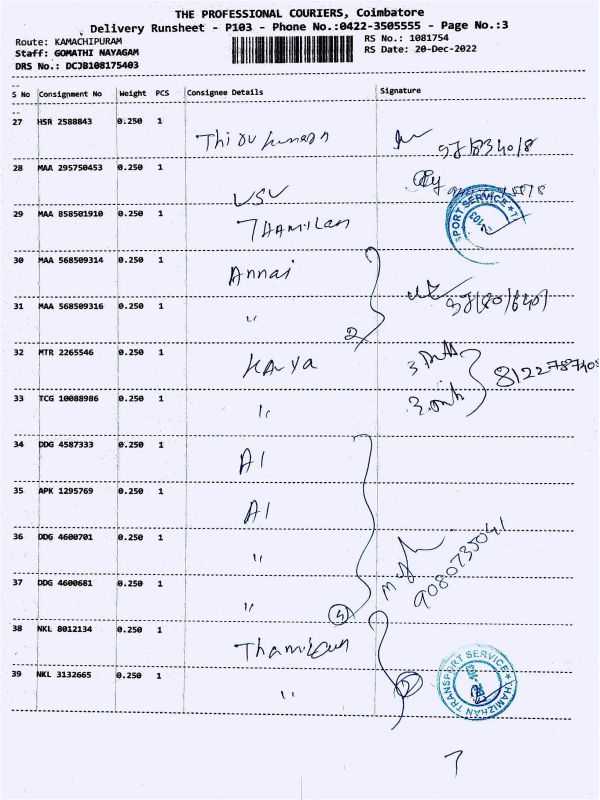 THE PROFESSIONAL COURIERS, Coimbatore
Delivery Runsheet - P103 - Phone No.:0422-3505555 - Page No.:3
Route: KAMACHIPURAM
Staff: GOMATHI NAYAGAM
DRS No.: DCJB108175403
RS No.: 1081754
RS Date: 20-Dec-2022
S No Consignment No Weight PCS Consignee Details Signature
27 HSR 2588843 0.250 1
28 MAA 295750453 0.250 1 VSV
29 MAA 858501910 0.250 1 THAMILAN
30 MAA 568509314 0.250 1 Annai
31 MAA 568509316 0.250 1 〃 2
32 MTR 2265546 0.250 1 Kavya
33 TCG 10088986 0.250 1 〃
34 DDG 4587333 0.250 1 A1
35 APK 1295769 0.250 1 A1
36 DDG 4600701 0.250 1 〃 9080735041
37 DDG 4600681 0.250 1 〃 4
38 NKL 8012134 0.250 1
39 NKL 3132665 0.250 1 〃 2
THAMIZHAN TRANSPORT SERVICE
7